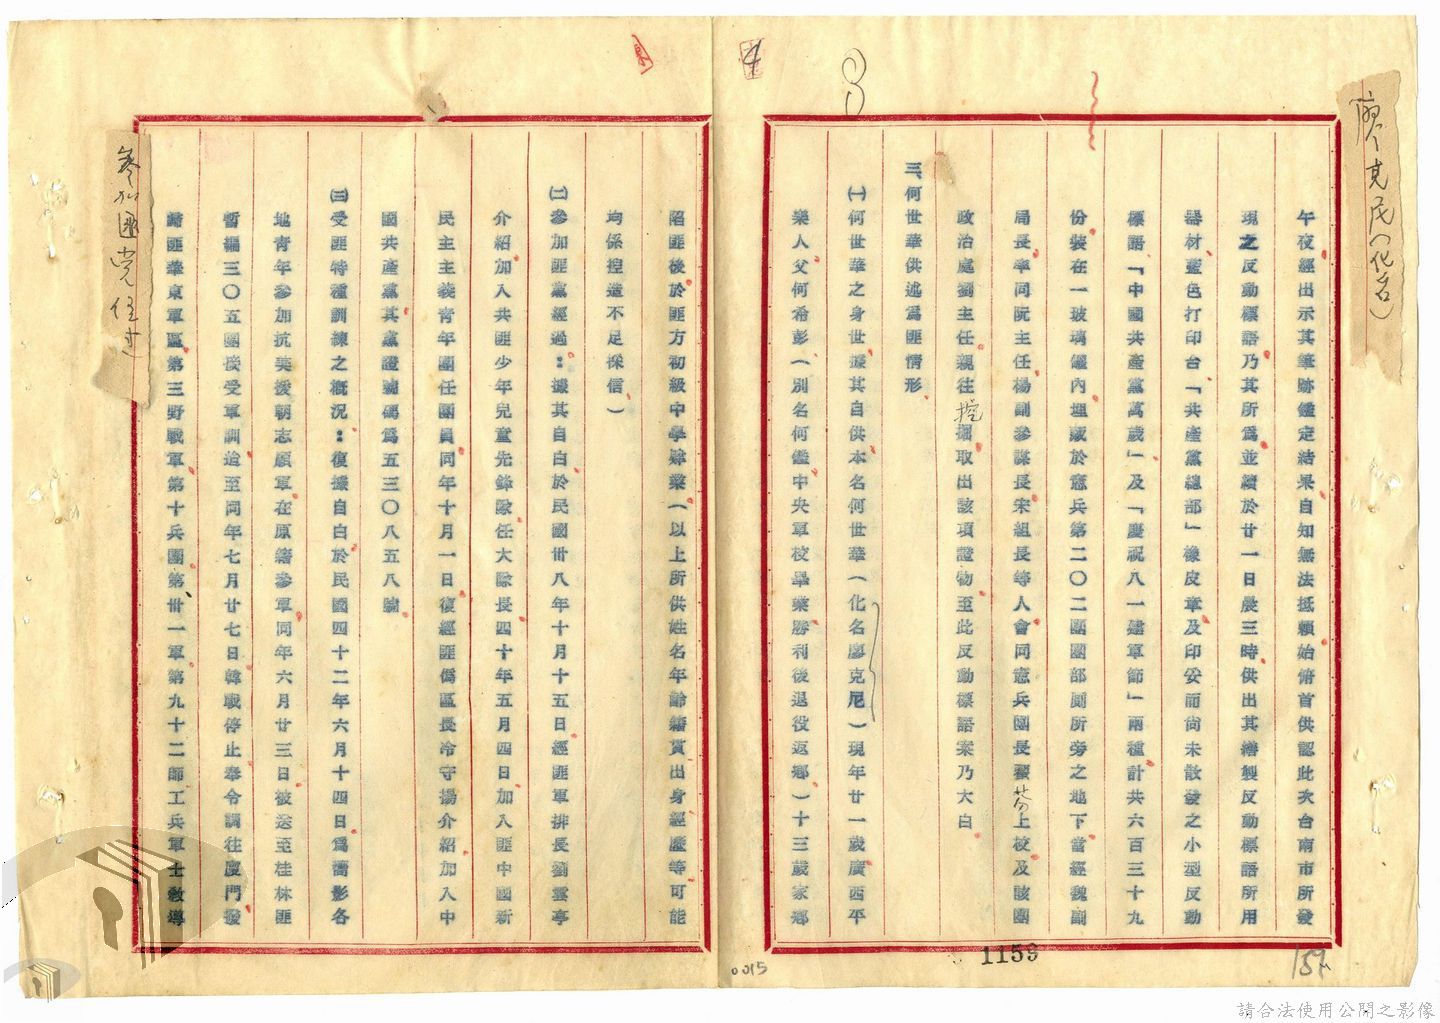 廖克民（化名）
午夜經出示其筆跡鑑定結果自知無法抵賴始俯首供認此次台南市所發
現之反動標語乃其所為並續於廿一日晨三時供出其繕製反動標語所用
器材藍色打印台「共產黨總部」橡皮章及印妥而尚未散發之小型反動
標語「中國共產黨萬歲」及「慶祝八一建軍節」兩種計共六百三十九
份裝在一玻璃罐內埋藏於憲兵第二〇二團團部廁所旁之地下當經魏副
局長率同阮主任楊副參謀長宋組長等人會同憲兵團長翟芬上校及該團
政治處劉主任親往挖掘取出該項證物至此反動標語案乃大白
三、何世華供述為匪情形
㈠何世華之身世據其自供本名何世華（化名廖克尼）現年廿一歲廣西平
樂人父何希彭（別名何鑑中央軍校畢業勝利後退役返鄉）十三歲家鄉
陷匪後於匪方初級中學肄業（以上所供姓名年齡籍貫出身經歷等可能
均係捏造不足採信）
㈡參加匪黨經過：據其自白於民國卅八年十月十五日經匪軍排長劉雲亭
介紹加入共匪少年兒童先鋒隊任大隊長四十年五月四日加入匪中國新
民主主義青年團任團員同年十月一日復經匪偽區長冷守揚介紹加入中
國共產黨其黨證號碼為五三〇八五八號
㈢受匪特種訓練之概況：復據自白於民國四十二年六月十四日為響影各
地青年參加抗美援朝志願軍在原籍參軍同年六月廿三日被送至桂林匪
暫編三〇五團接受軍訓迨至同年七月廿七日韓戰停止奉令調往廈門發
歸匪華東軍區第三野戰軍第十兵團第卅一軍第九十二師工兵軍士教導
參加匪党經過
4
1159
0015
157
請合法使用公開之影像